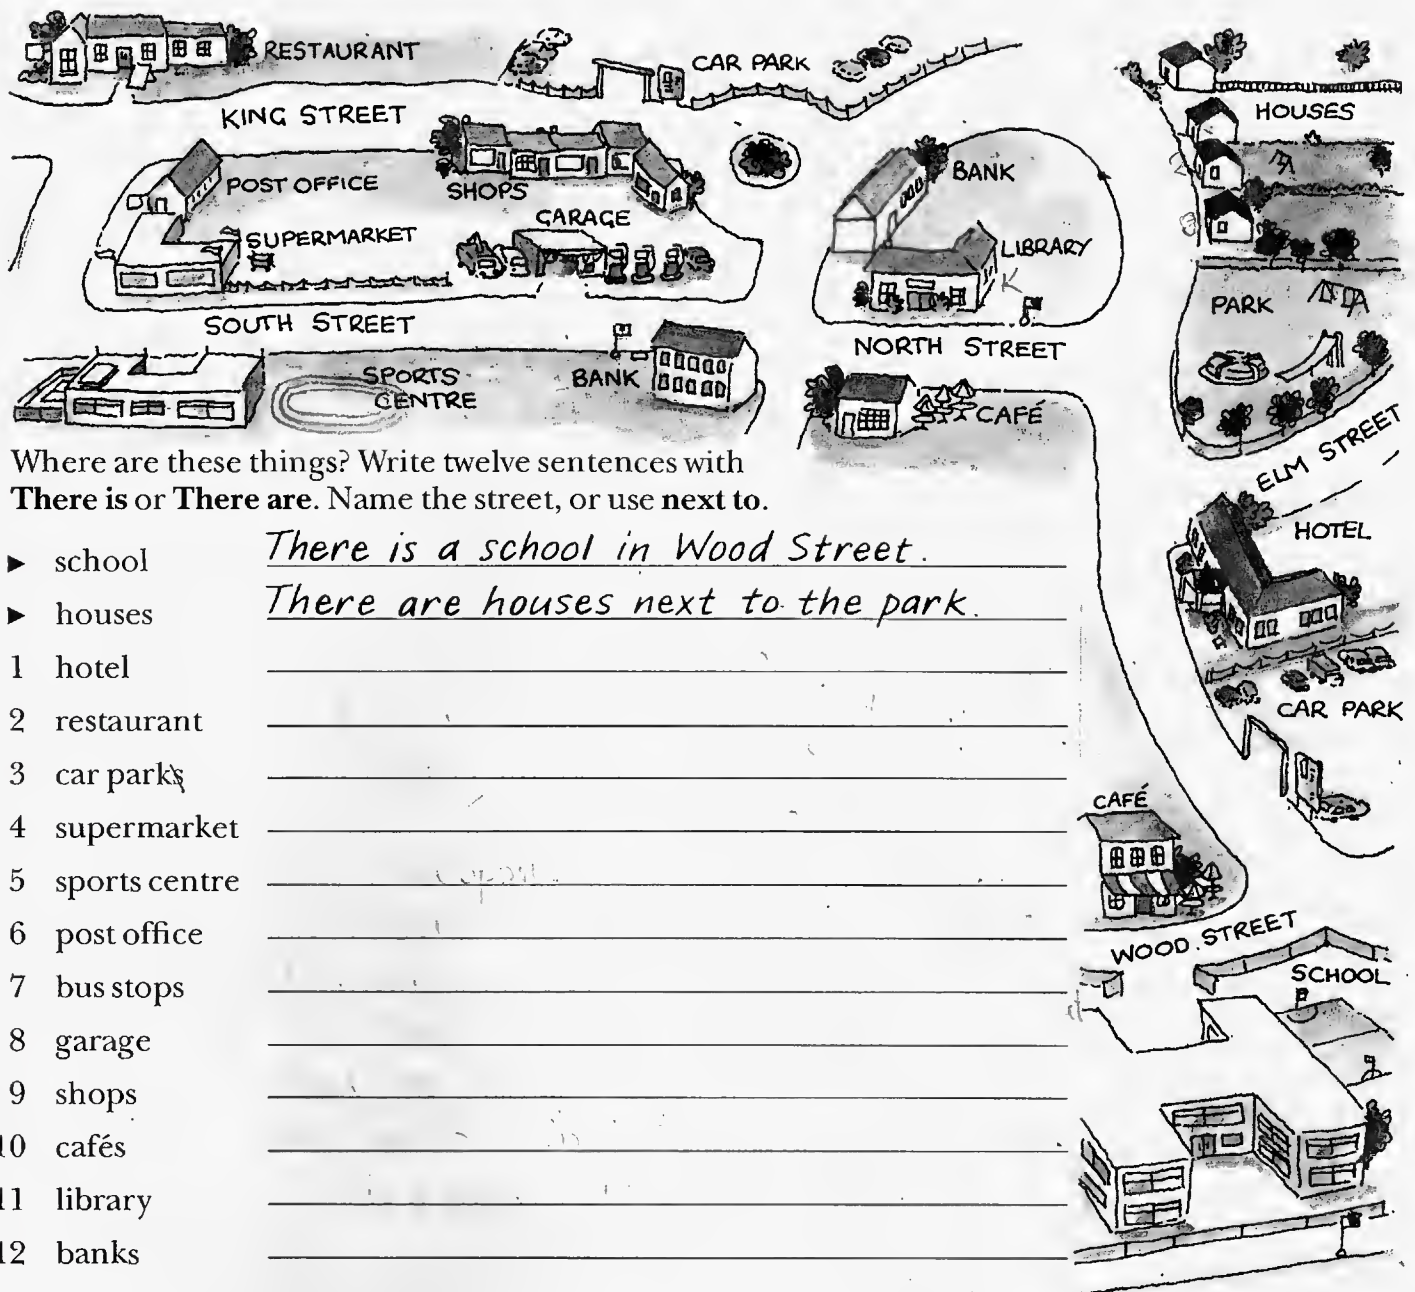 RESTAURANT
CAR PARK
HOUSES
KING STREET
POST OFFICE
SHOPS
BANK
GARAGE
SUPERMARKET
LIBRARY
K
PARK
SOUTH STREET
NORTH STREET
SPORTS
CENTRE
BANK
CAFÉ
ELM STREET
Where are these things? Write twelve sentences with
There is or There are. Name the street, or use next to.
HOTEL
▶ school There is a school in Wood Street.
▶ houses There are houses next to the park.
1 hotel
2 restaurant
CAR PARK
3 car parks
CAFÉ
4 supermarket
5 sports centre
6 post office
WOOD STREET
SCHOOL
7 bus stops
8 garage
9 shops
10 cafés
11 library
12 banks